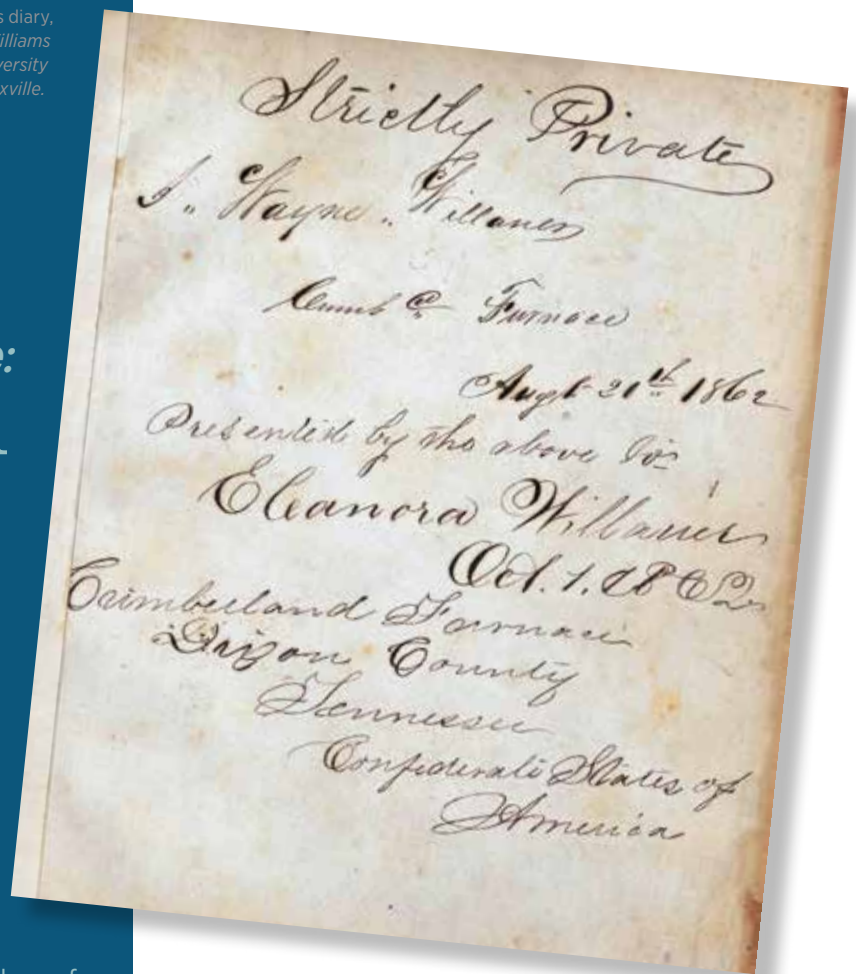 s diary,
illiams
versity
xville.
e:
Strictly Private
J. Wayne. Willauer
Cumb d Furnace
Augt 21st 1862
Presented by the above to
Eleanora Willauer
Oct. 1. 1862
Cumberland Furnace
Dixon County
Tennessee
Confederate States of
America